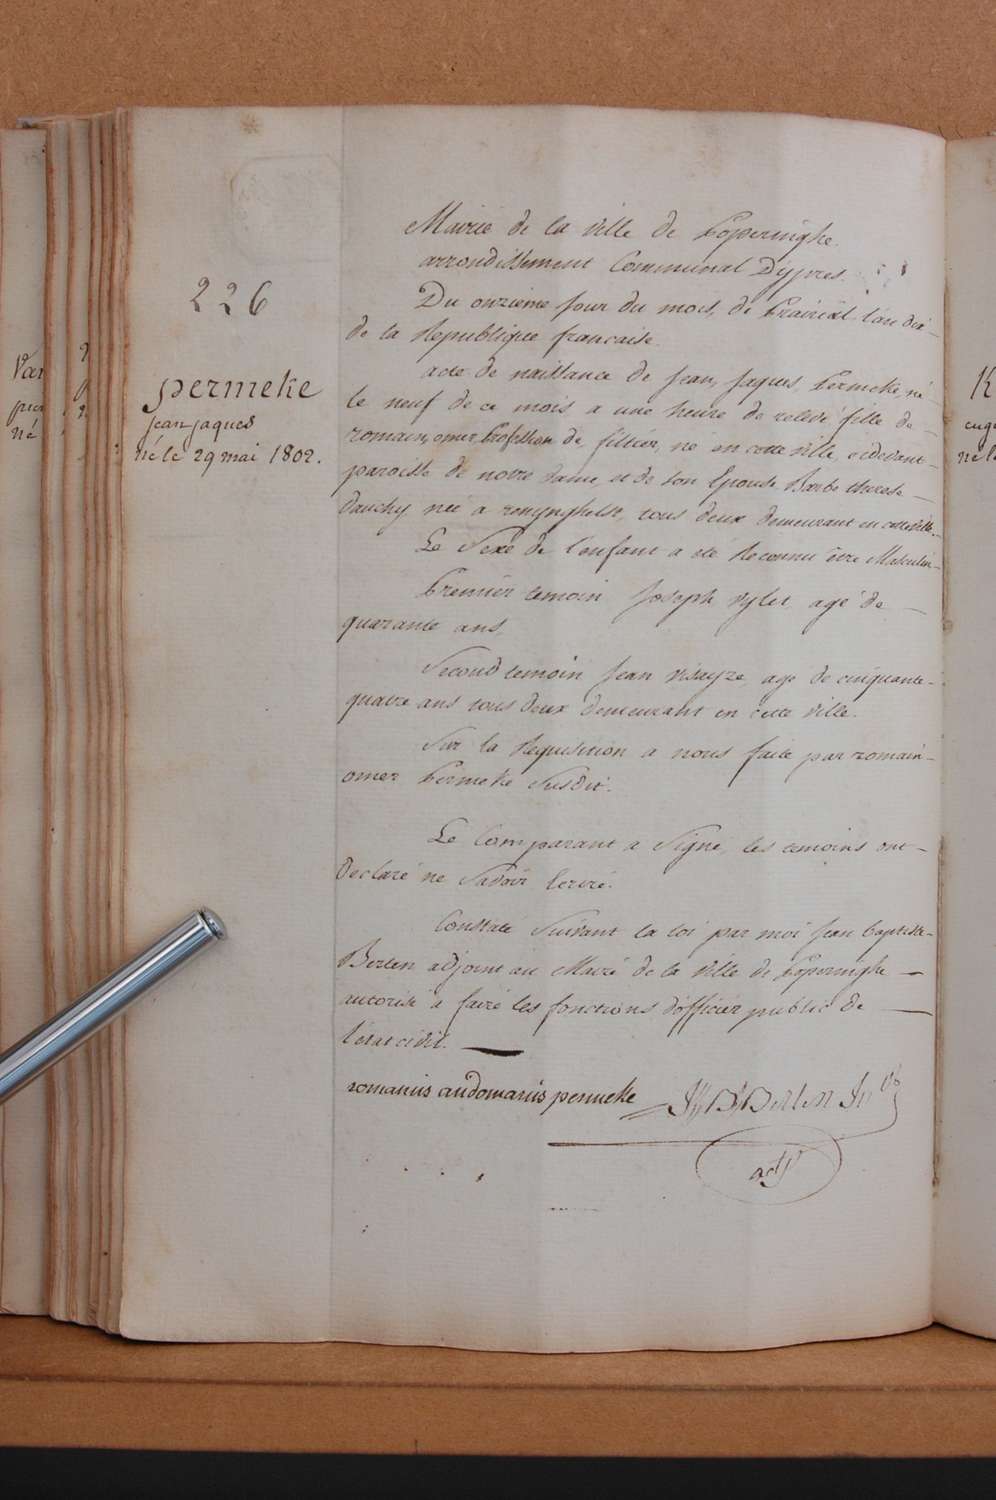 226
permeke
jean jaques
né le 29 mai 1802.
Mairie de la ville de Poperinghe
arrondissement Communal D'ypres.
Du onzieme jour du mois, de Prairial l'an dix
de la Republique francaise
acte de naissance de Jean Jaques Permeke, né
le neuf de ce mois a une heure de relevé fille de
romain omer Proffession de fillier, né en cette ville, cidevant
paroisse de notre dame et de son Epouse Barbe therese
Dauchy née a renynghelst, tous deux demeurant en cette ville.
Le Sexe de l'enfant a été Reconnu être Masculin
Premier temoin Joseph agé de
quarante ans.
Second temoin Jean age de cinquante
quatre ans tous deux demeurant en cette ville.
Sur la Requisition a nous faite par romain
omer Permeke Susdit.
Le Comparant a Signé, les temoins ont
Declaré ne Savoir Ecrire.
Constaté Suivant la loi par moi Jean baptiste
Berten adjoint au Maire de la ville de Poperinghe
autorisé a faire les fonctions d'officier public de
l'état civil.
romanus audomarus permeke
J B Berten
adj
Van
né
K
euge
né le